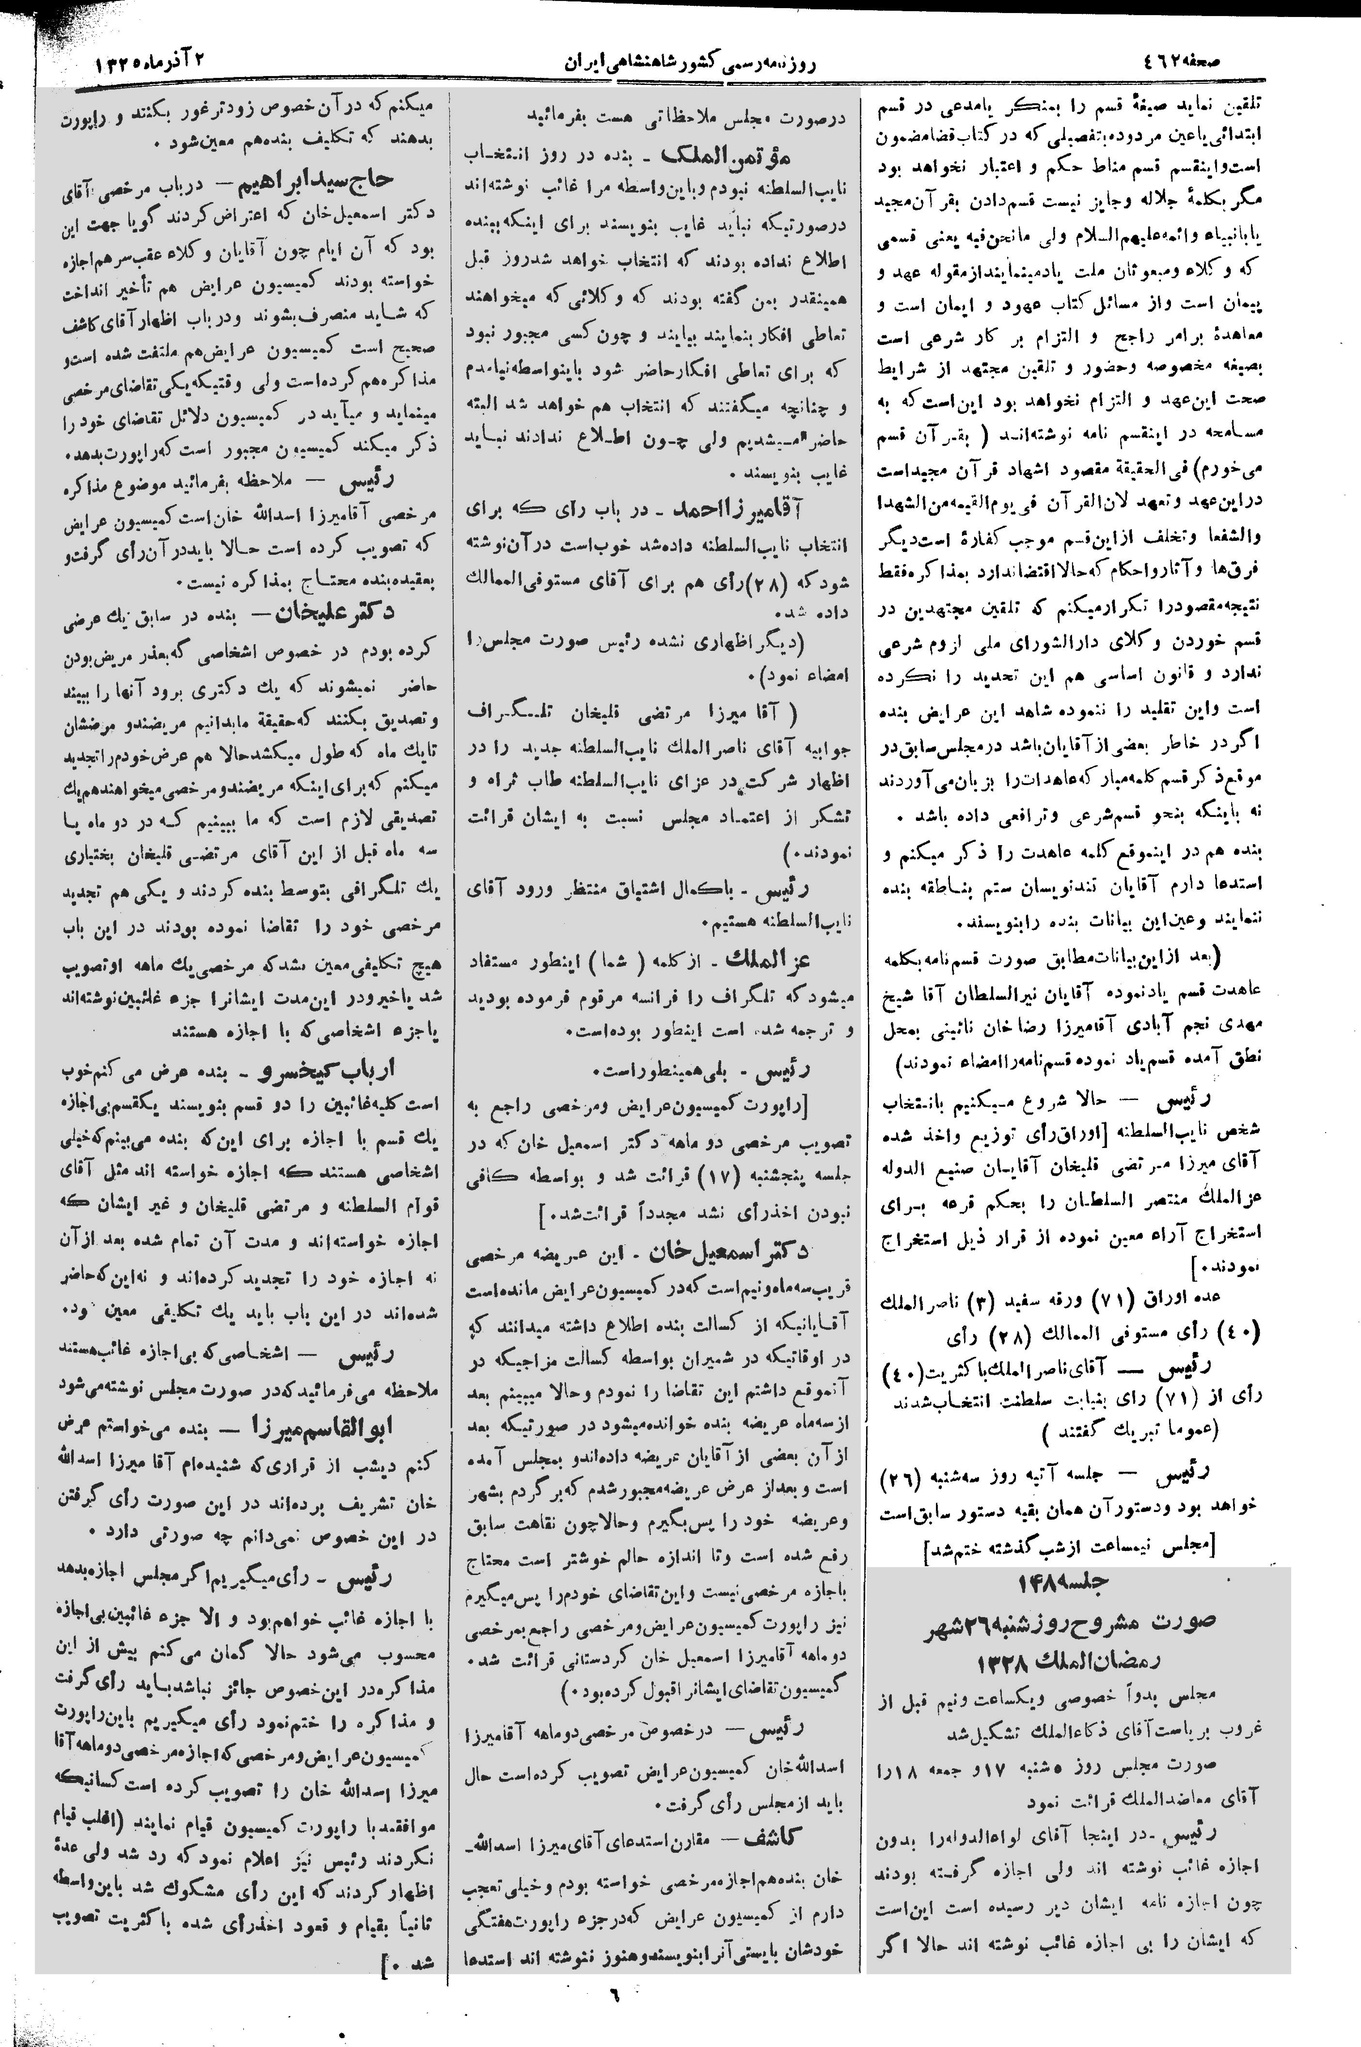 صفحه ٤٦٢
روزنامه رسمی کشور شاهنشاهی ایران
٢ آذر ماه ١٣٢٥
تلقین نماید صیغهٔ قسم را بمنکر یا مدعی در قسم
ابتدائی یا عین مردوده بتفصیلی که در کتاب قضا مضمون
است و اینقسم قسم مناط حکم و اعتبار نخواهد بود
مگر بکلمهٔ جلاله و جایز نیست قسم دادن بقرآن مجید
یا بانبیاء و ائمه علیهم السلام ولی ما نحن فیه یعنی قسمی
که وکلاء و مبعوثان ملت یاد مینمایند از مقوله عهد و
پیمان است و از مسائل کتاب عهود و ایمان است و
معاهدهٔ بر امر راجح و التزام بر کار شرعی است
بصیغه مخصوصه و حضور و تلقین مجتهد از شرایط
صحت این عهد و التزام نخواهد بود این است که به
مسامحه در اینقسم نامه نوشته‌اند ( بقرآن قسم
می‌خورم) فی الحقیقة مقصود اشهاد قرآن مجید است
در این عهد و تعهد لان القرآن فی یوم القیمه من الشهدا
والشفعا و تخلف از این قسم موجب کفارة است دیگر
فرق‌ها و آثار و احکام که حالا اقتضا ندارد بمذاکره فقط
نتیجه مقصود را تکرار میکنم که تلقین مجتهدین در
قسم خوردن وکلای دارالشورای ملی لزوم شرعی
ندارد و قانون اساسی هم این تحدید را نکرده
است و این تقلید را ننموده شاهد این عرایض بنده
اگر در خاطر بعضی از آقایان باشد در مجلس سابق در
موقع ذکر قسم کلمه مبارکه عاهدات را بزبان می‌آوردند
نه باینکه بنحو قسم شرعی و ترافعی داده باشد .
بنده هم در اینموقع کلمه عاهدت را ذکر میکنم و
استدعا دارم آقایان تندنویسان ستم بناطقه بنده
ننمایند و عین این بیانات بنده را بنویسند.
(بعد از این بیانات مطابق صورت قسم نامه بکلمه
عاهدت قسم یاد نموده آقایان نیرالسلطان آقا شیخ
مهدی نجم آبادی آقا میرزا رضا خان نائینی بمحل
نطق آمده قسم یاد نموده قسم نامه را امضاء نمودند)
رئیس — حالا شروع میکنیم بانتخاب
شخص نایب‌السلطنه [اوراق رأی توزیع و اخذ شده
آقای میرزا مرتضی قلیخان آقایان صنیع الدوله
عزالملك منتصر السلطان را بحکم قرعه برای
استخراج آراء معین نموده از قرار ذیل استخراج
نمودند.]
عده اوراق (٧١) ورقه سفید (٣) ناصرالملك
(٤٠) رأی مستوفی الممالك (٢٨) رأی
رئیس — آقای ناصرالملك باکثریت (٤٠)
رأی از (٧١) رای بنیابت سلطنت انتخاب شدند
(عموما تبریك گفتند )
رئیس — جلسه آتیه روز سه‌شنبه (٢٦)
خواهد بود و دستور آن همان بقیه دستور سابق است
[مجلس نیمساعت از شب گذشته ختم شد]
جلسه ١٤٨
صورت مشروح روز شنبه ٢٦ شهر
رمضان الملك ١٣٢٨
مجلس بدواً خصوصی و یکساعت و نیم قبل از
غروب بریاست آقای ذکاءالملك تشکیل شد
صورت مجلس روز ٥ شنبه ١٧ و جمعه ١٨ را
آقای معاضدالملك قرائت نمود
رئیس - در اینجا آقای لواءالدوله را بدون
اجازه غائب نوشته اند ولی اجازه گرفته بودند
چون اجازه نامه ایشان دیر رسیده است این است
که ایشان را بی اجازه غائب نوشته اند حالا اگر
در صورت مجلس ملاحظاتی هست بفرمائید
مؤتمن الملك - بنده در روز انتخاب
نایب‌السلطنه نبودم و باین واسطه مرا غائب نوشته‌اند
درصورتیکه نباید غایب بنویسند برای اینکه ببنده
اطلاع نداده بودند که انتخاب خواهد شد روز قبل
همینقدر بمن گفته بودند که وکلائی که میخواهند
تعاطی افکار بنمایند بیایند و چون کسی مجبور نبود
که برای تعاطی افکار حاضر شود باینواسطه نیامدم
و چنانچه میگفتند که انتخاب هم خواهد شد البته
حاضر میشدیم ولی چون اطلاع ندادند نباید
غایب بنویسند .
آقا میرزا احمد - در باب رای که برای
انتخاب نایب‌السلطنه داده شد خوب است در آن نوشته
شود که (٢٨) رأی هم برای آقای مستوفی الممالك
داده شد.
(دیگر اظهاری نشده رئیس صورت مجلس را
امضاء نمود).
( آقا میرزا مرتضی قلیخان تلگراف
جوابیه آقای ناصرالملك نایب‌السلطنه جدید را در
اظهار شرکت در عزای نایب‌السلطنه طاب ثراه و
تشکر از اعتماد مجلس نسبت به ایشان قرائت
نمودند.)
رئیس - با کمال اشتیاق منتظر ورود آقای
نایب‌السلطنه هستیم.
عزالملك - از کلمه ( شما ) اینطور مستفاد
میشود که تلگراف را فرانسه مرقوم فرموده بودید
و ترجمه شده است اینطور بوده‌است.
رئیس - بلی همینطور است.
[راپورت کمیسیون عرایض و مرخصی راجع به
تصویب مرخصی دو ماهه دکتر اسمعیل خان که در
جلسه پنجشنبه (١٧) قرائت شد و بواسطه کافی
نبودن اخذ رأی نشد مجدداً قرائت شد.]
دکتر اسمعیل خان - این عریضه مرخصی
قریب سه ماه و نیم است که در کمیسیون عرایض مانده است
آقایانیکه از کسالت بنده اطلاع داشته میدانند که
در اوقاتیکه در شمیران بواسطه کسالت مزاجیکه در
آنموقع داشتم این تقاضا را نمودم و حالا میبینم بعد
از سه ماه عریضه بنده خوانده میشود در صورتیکه بعد
از آن بعضی از آقایان عریضه داده‌اند و بمجلس آمده
است و بعد از عرض عریضه مجبور شدم که برگردم بشهر
و عریضه خود را پس بگیرم و حالا چون نقاهت سابق
رفع شده است و تا اندازه حالم خوشتر است محتاج
با جازه مرخصی نیست و این تقاضای خودم را پس میگیرم
نیز راپورت کمیسیون عرایض و مرخصی راجع بمرخصی
دو ماهه آقا میرزا اسمعیل خان کردستانی قرائت شد.
کمیسیون تقاضای ایشانرا قبول کرده بود.)
رئیس — در خصوص مرخصی دو ماهه آقا میرزا
اسدالله خان کمیسیون عرایض تصویب کرده است حال
باید از مجلس رأی گرفت.
کاشف — مقارن استدعای آقای میرزا اسدالله-
خان بنده هم اجازه مرخصی خواسته بودم و خیلی تعجب
دارم از کمیسیون عرایض که در جزء راپورت هفتگی
خودشان بایستی آنرا بنویسند و هنوز ننوشته اند استدعا
میکنم که در آن خصوص زودتر غور بکنند و راپورت
بدهند که تکلیف بنده هم معین شود .
حاج سید ابراهیم — در باب مرخصی آقای
دکتر اسمعیل خان که اعتراض کردند گویا جهت این
بود که آن ایام چون آقایان وکلاء عقب سر هم اجازه
خواسته بودند کمیسیون عرایض هم تأخیر انداخت
که شاید منصرف بشوند و در باب اظهار آقای کاشف
صحیح است کمیسیون عرایض هم ملتفت شده است و
مذاکره هم کرده است ولی وقتیکه یکی تقاضای مرخصی
مینماید و میآید در کمیسیون دلائل تقاضای خود را
ذکر میکند کمیسیون مجبور است که راپورت بدهد.
رئیس — ملاحظه بفرمائید موضوع مذاکره
مرخصی آقا میرزا اسدالله خان است کمیسیون عرایض
که تصویب کرده است حالا باید در آن رأی گرفت و
بعقیده بنده محتاج بمذاکره نیست.
دکتر علیخان — بنده در سابق یك عرضی
کرده بودم در خصوص اشخاصی که بعذر مریض بودن
حاضر نمیشوند که یك دکتری برود آنها را ببیند
و تصدیق بکنند که حقیقة ما بدانیم مریضند و مرضشان
تا یك ماه که طول میکشد حالا هم عرض خودم را تجدید
میکنم که برای اینکه مریضند و مرخصی میخواهند هم یك
تصدیقی لازم است که ما ببینیم که در دو ماه یا
سه ماه قبل از این آقای مرتضی قلیخان بختیاری
یك تلگرافی بتوسط بنده کردند و یکی هم تجدید
مرخصی خود را تقاضا نموده بودند در این باب
هیچ تکلیفی معین نشد که مرخصی یك ماهه او تصویب
شد یا خیر و در این مدت ایشانرا جزء غائبین نوشته‌اند
یا جزء اشخاصی که با اجازه هستند
ارباب کیخسرو - بنده عرض می کنم خوب
است کلیه غائبین را دو قسم بنویسند یکقسم بی اجازه
یك قسم با اجازه برای این که بنده می‌بینم که خیلی
اشخاصی هستند که اجازه خواسته اند مثل آقای
قوام السلطنه و مرتضی قلیخان و غیر ایشان که
اجازه خواسته‌اند و مدت آن تمام شده بعد از آن
نه اجازه خود را تجدید کرده‌اند و نه این که حاضر
شده‌اند در این باب باید یك تکلیفی معین شود.
رئیس — اشخاصی که بی اجازه غائب هستند
ملاحظه می‌فرمائید که در صورت مجلس نوشته می‌شود
ابوالقاسم میرزا — بنده می‌خواستم عرض
کنم دیشب از قراری که شنیده‌ام آقا میرزا اسدالله
خان تشریف برده‌اند در این صورت رأی گرفتن
در این خصوص نمی‌دانم چه صورتی دارد .
رئیس - رأی میگیریم اگر مجلس اجازه بدهد
با اجازه غائب خواهم بود و الا جزء غائبین بی اجازه
محسوب می‌شود حالا گمان می‌کنم بیش از این
مذاکره در این خصوص جائز نباشد باید رأی گرفت
و مذاکره را ختم نمود رأی میگیریم باین راپورت
کمیسیون عرایض و مرخصی که اجازه مرخصی دو ماهه آقا
میرزا اسدالله خان را تصویب کرده است کسانیکه
موافقند با راپورت کمیسیون قیام نمایند (اغلب قیام
نکردند رئیس نیز اعلام نمود که رد شد ولی عدهٔ
اظهار کردند که این رأی مشکوك شد باین واسطه
ثانیاً بقیام و قعود اخذ رأی شده با کثریت تصویب
شد .]
٦